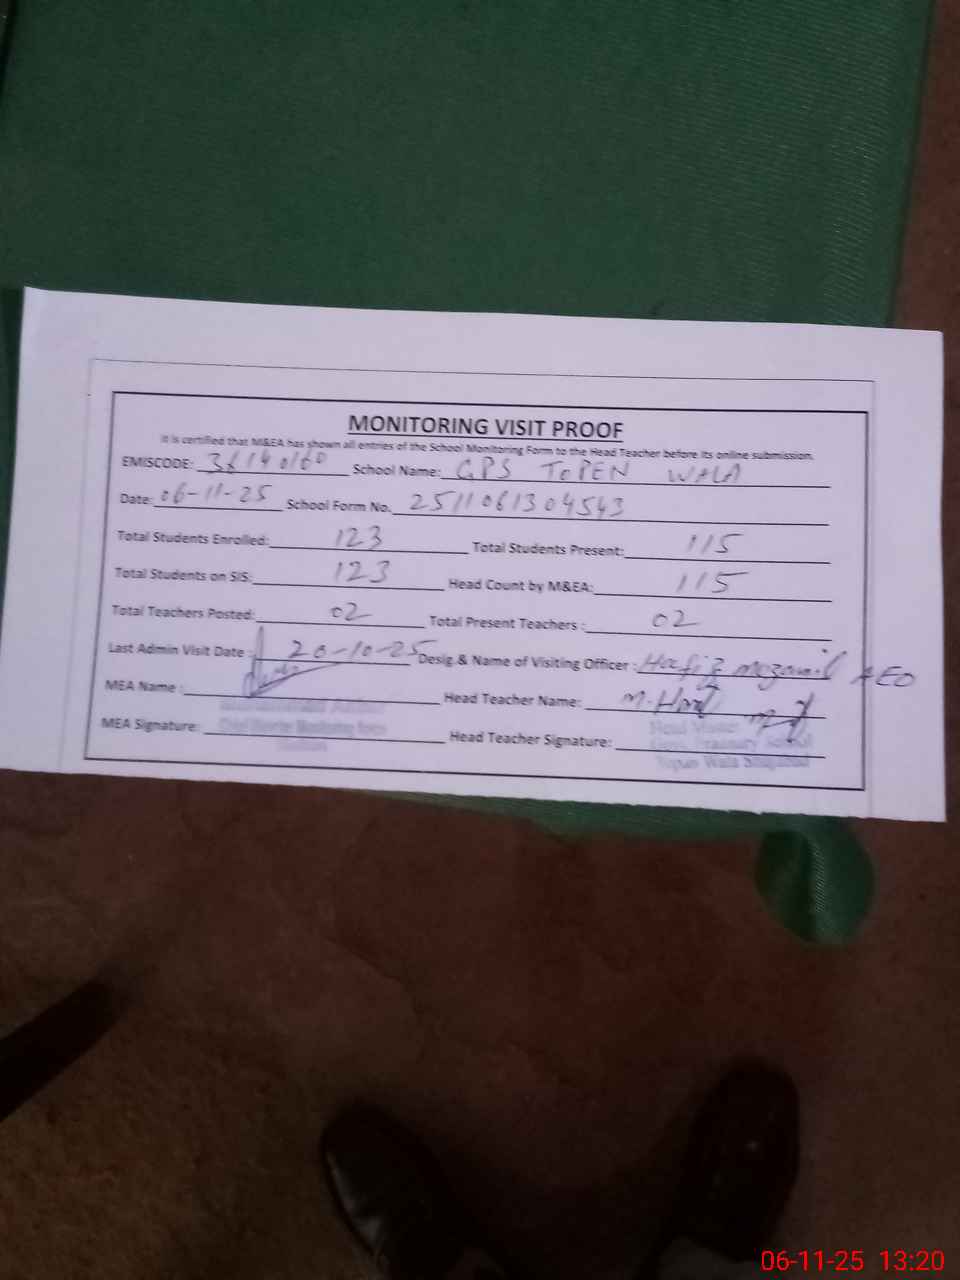 MONITORING VISIT PROOF
It is certified that M&EA has shown all entries of the School Monitoring Form to the Head Teacher before its online submission.
EMISCODE: 36140160 School Name: GPS TOPEN WALA
Date: 06-11-25 School Form No. 2511061304543
Total Students Enrolled: 123 Total Students Present: 115
Total Students on SIS: 123 Head Count by M&EA: 115
Total Teachers Posted: 02 Total Present Teachers : 02
Last Admin Visit Date : 20-10-25 Desig & Name of Visiting Officer : Hafiz mozamil AEO
MEA Name : Head Teacher Name:
MEA Signature: Head Teacher Signature:
Head Master
Govt. Primary School
Topen Wala Shujabad
06-11-25 13:20